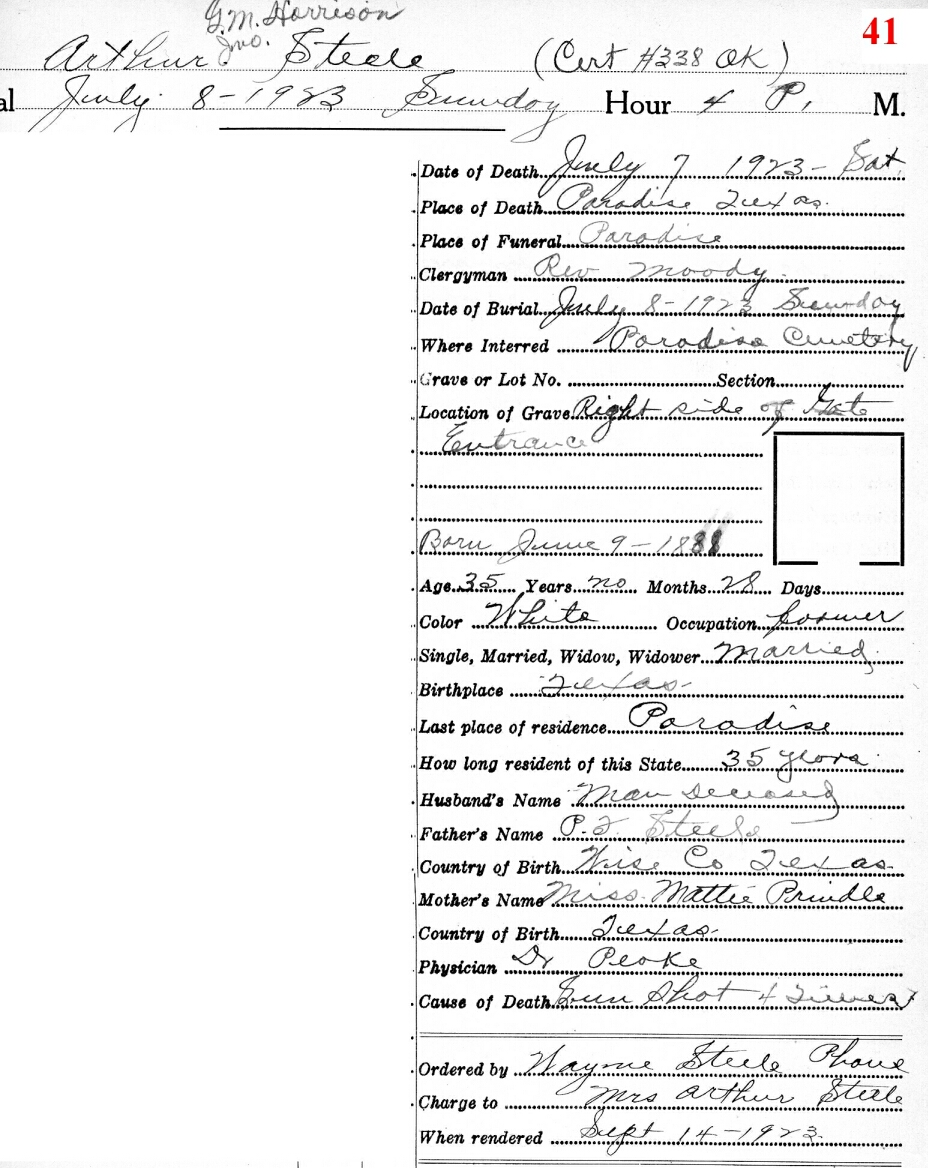 G.M. Harrison
41
Jno.
Arthur Steele (Cert #338 OK)
al July 8-1923 Sunday Hour 4 P. M.
Date of Death July 7 1923 - Sat.
Place of Death Paradise Texas.
Place of Funeral Paradise
Clergyman Rev Moody.
Date of Burial July 8-1923 Sunday
Where Interred Paradise Cemetery
Grave or Lot No. Section
Location of Grave Right side of Gate
Entrance
Born June 9-1888
Age 35 Years no Months 28 Days
Color White Occupation farmer
Single, Married, Widow, Widower Married.
Birthplace Texas-
Last place of residence Paradise
How long resident of this State 35 years
Husband's Name Man Deceased
Father's Name P.T. Steele
Country of Birth Wise Co Texas-
Mother's Name Miss. Mattie Prindle
Country of Birth Texas-
Physician Dr Peake
Cause of Death Gun Shot 4 Times
Ordered by Wayne Steele Phone
Charge to Mrs Arthur Steele
When rendered Sept 14-1923.